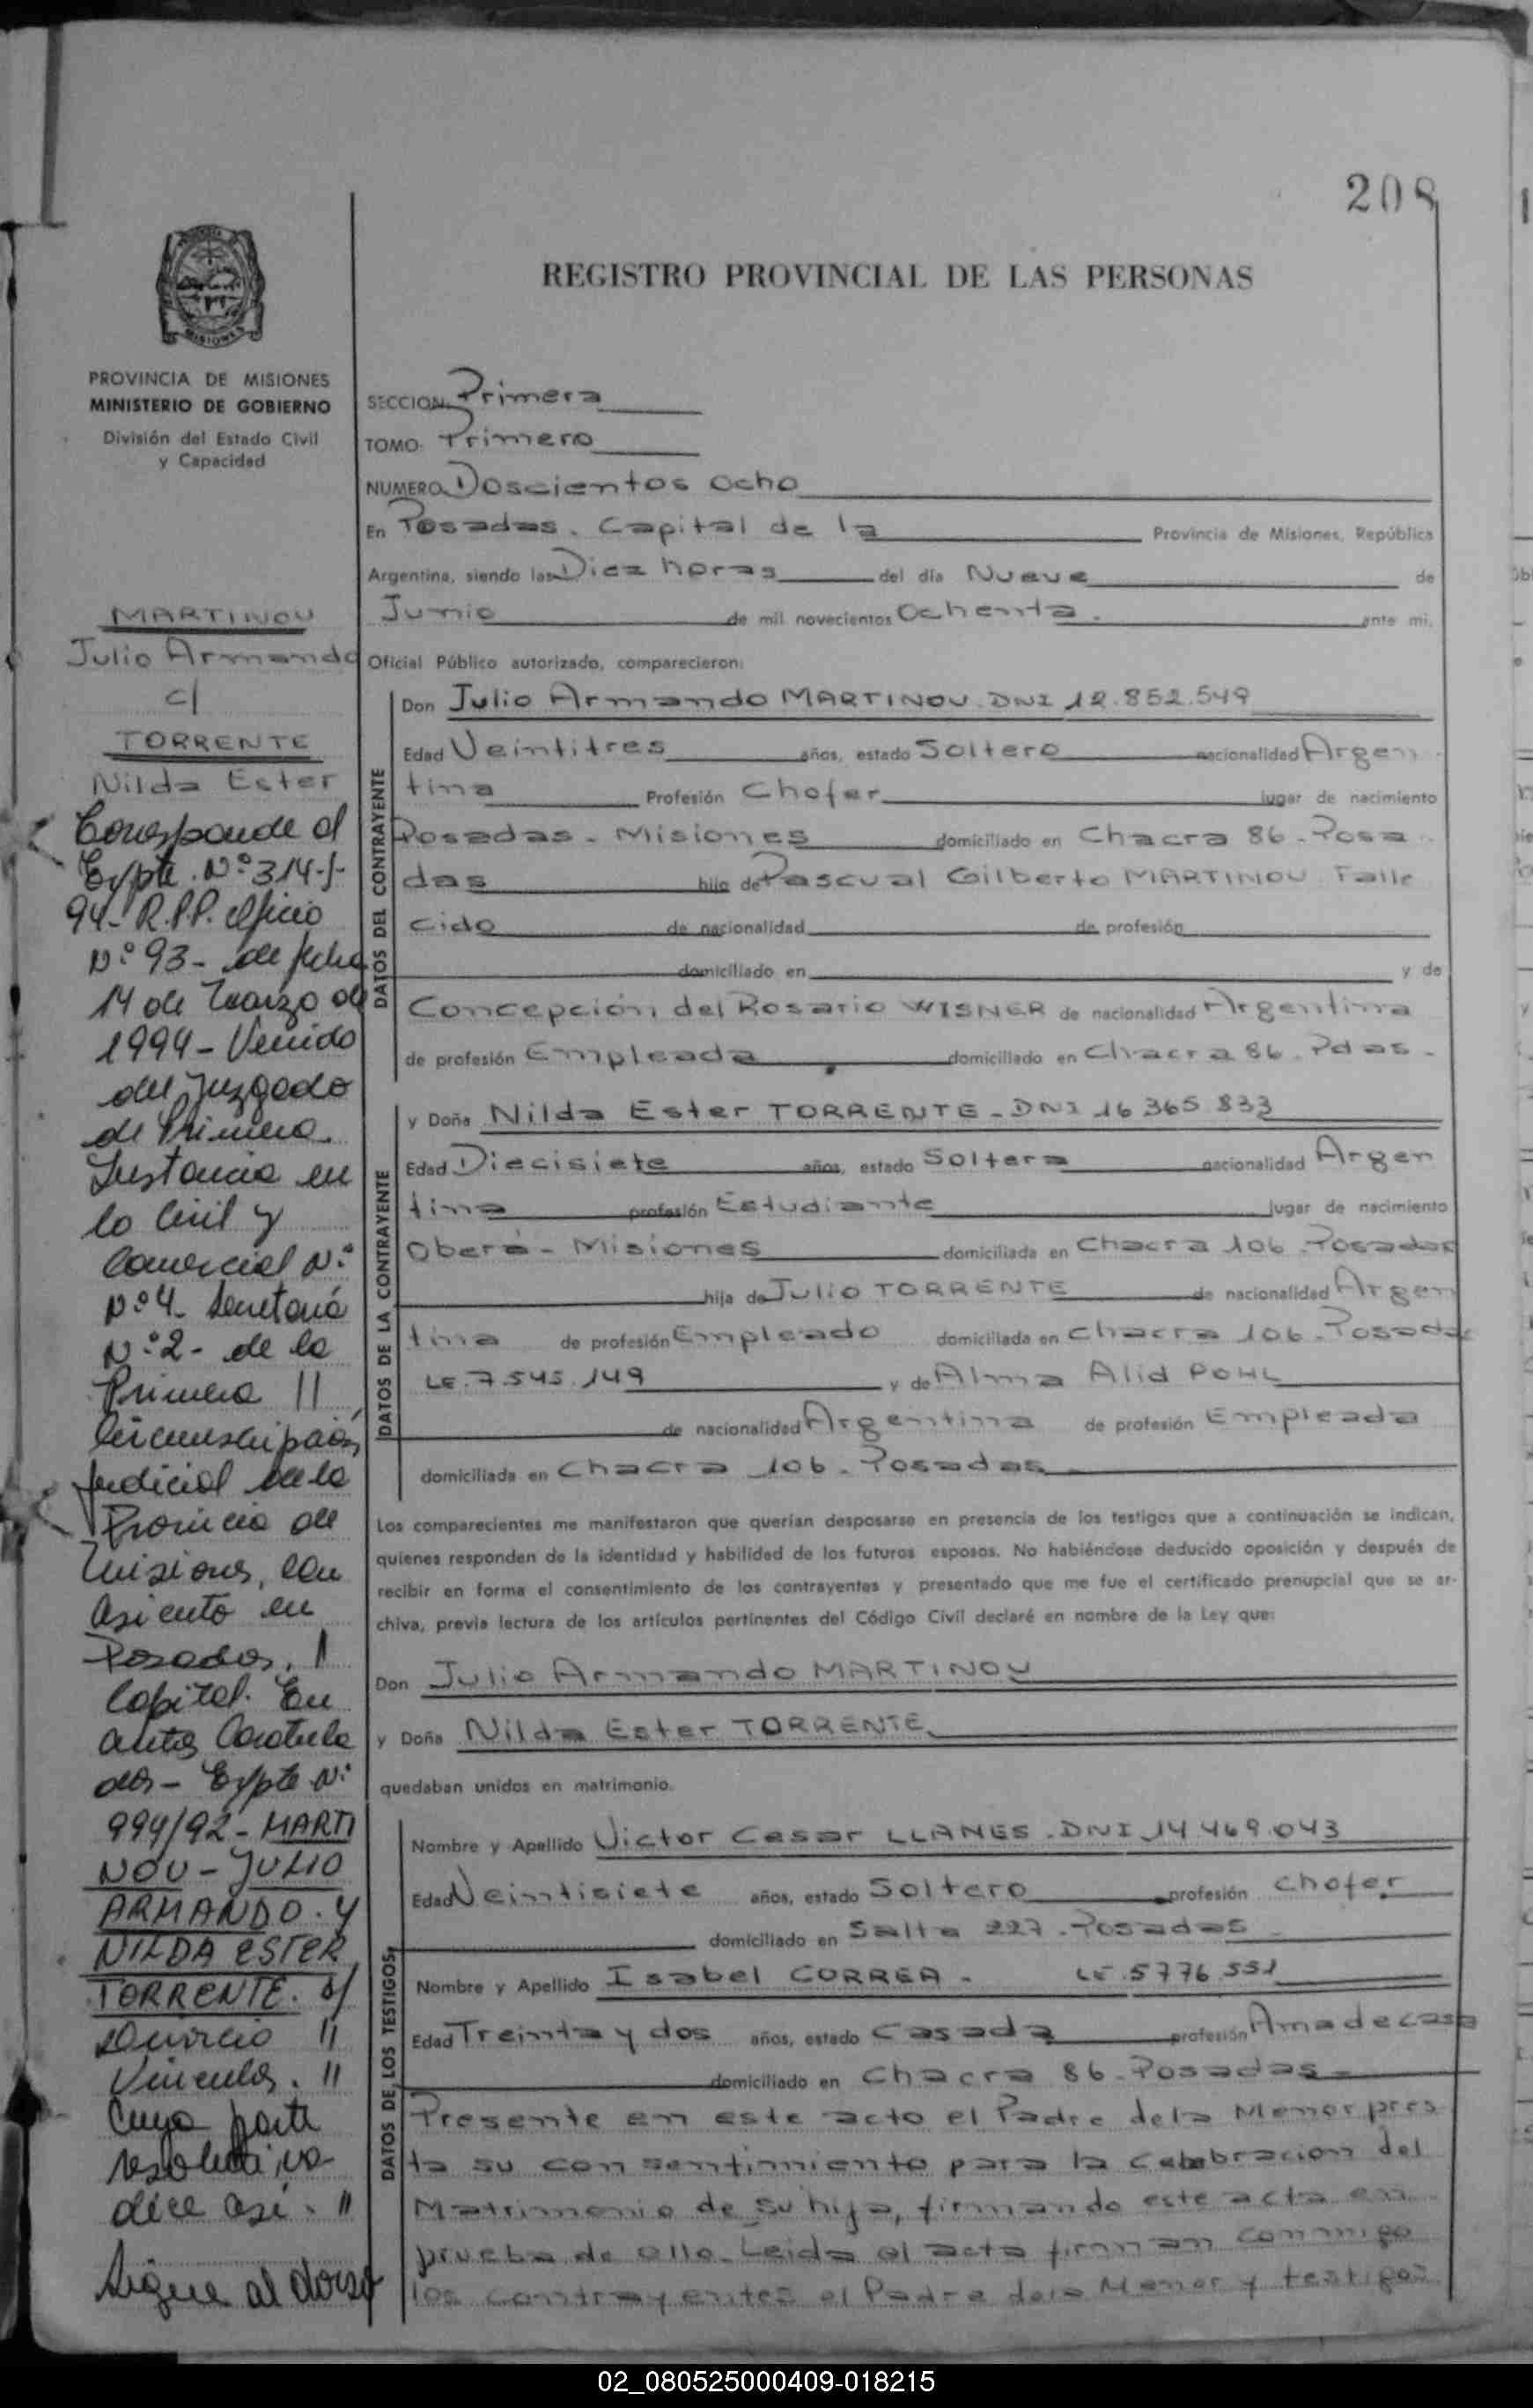 208
REGISTRO PROVINCIAL DE LAS PERSONAS
MISIONES
PROVINCIA DE MISIONES
MINISTERIO DE GOBIERNO
División del Estado Civil
y Capacidad
MARTINOV
Julio Armando
c/
TORRENTE
Nilda Ester
Corresponde al
Expte. Nº 314-J-
94- R.P.P. oficio
Nº 93- de fecha
14 de Marzo de
1994- Venido
del Juzgado
de Primera
Instancia en
lo Civil y
Comercial Nº
Nº 4- Secretaría
Nº 2- de la
Primera //
Circunscripción
Judicial de la
Provincia de
Misiones, con
asiento en
Posadas, /
Capital. En
autos Caratula
dos- Expte Nº
994/92- MARTI
NOV- JULIO
ARMANDO. Y
NILDA ESTER
TORRENTE. s/
Divorcio //
Vincular. //
Cuya parte
resolutiva
dice así. //
Sigue al dorso
SECCION Primera
TOMO Primero
NUMERO Doscientos ocho
En Posadas. Capital de la Provincia de Misiones, República
Argentina, siendo las Diez horas del día Nueve de
Junio de mil novecientos Ochenta. ante mi,
Oficial Público autorizado, comparecieron:
DATOS DEL CONTRAYENTE
Don Julio Armando MARTINOV. DNI 12.852.549
Edad Veintitres años, estado Soltero nacionalidad Argen
tina Profesión Chofer lugar de nacimiento
Posadas - Misiones domiciliado en Chacra 86 - Posa
das hijo de Pascual Gilberto MARTINOV. Falle
cido de nacionalidad de profesión
domiciliado en y de
Concepción del Rosario WISNER de nacionalidad Argentina
de profesión Empleada domiciliado en Chacra 86. Pdas.
DATOS DE LA CONTRAYENTE
y Doña Nilda Ester TORRENTE - DNI 16 365 833
Edad Diecisiete años, estado Soltera nacionalidad Argen
tina profesión Estudiante lugar de nacimiento
Oberá - Misiones domiciliada en Chacra 106 - Posadas
hija de Julio TORRENTE de nacionalidad Argen
tina de profesión Empleado domiciliada en Chacra 106 - Posadas
LE. 7.545.149 y de Alma Alid POHL
de nacionalidad Argentina de profesión Empleada
domiciliada en Chacra 106 - Posadas
Los comparecientes me manifestaron que querían desposarse en presencia de los testigos que a continuación se indican,
quienes responden de la identidad y habilidad de los futuros esposos. No habiéndose deducido oposición y después de
recibir en forma el consentimiento de los contrayentes y presentado que me fue el certificado prenupcial que se ar-
chiva, previa lectura de los artículos pertinentes del Código Civil declaré en nombre de la Ley que:
Don Julio Armando MARTINOV
y Doña Nilda Ester TORRENTE
quedaban unidos en matrimonio.
DATOS DE LOS TESTIGOS
Nombre y Apellido Victor Cesar LLANES - DNI 14 469.043
Edad Veintisiete años, estado Soltero profesión Chofer
domiciliado en Salta 227 - Posadas
Nombre y Apellido Isabel CORREA - LE. 5776.551
Edad Treinta y dos años, estado Casada profesión Ama de casa
domiciliado en Chacra 86 - Posadas
Presente en este acto el Padre de la Menor pres
ta su consentimiento para la celebracion del
Matrimonio de su hija, firmando este acta en
prueba de ello. Leida el acta firman conmigo
los contrayentes el Padre de la Menor y testigos
02_080525000409-018215